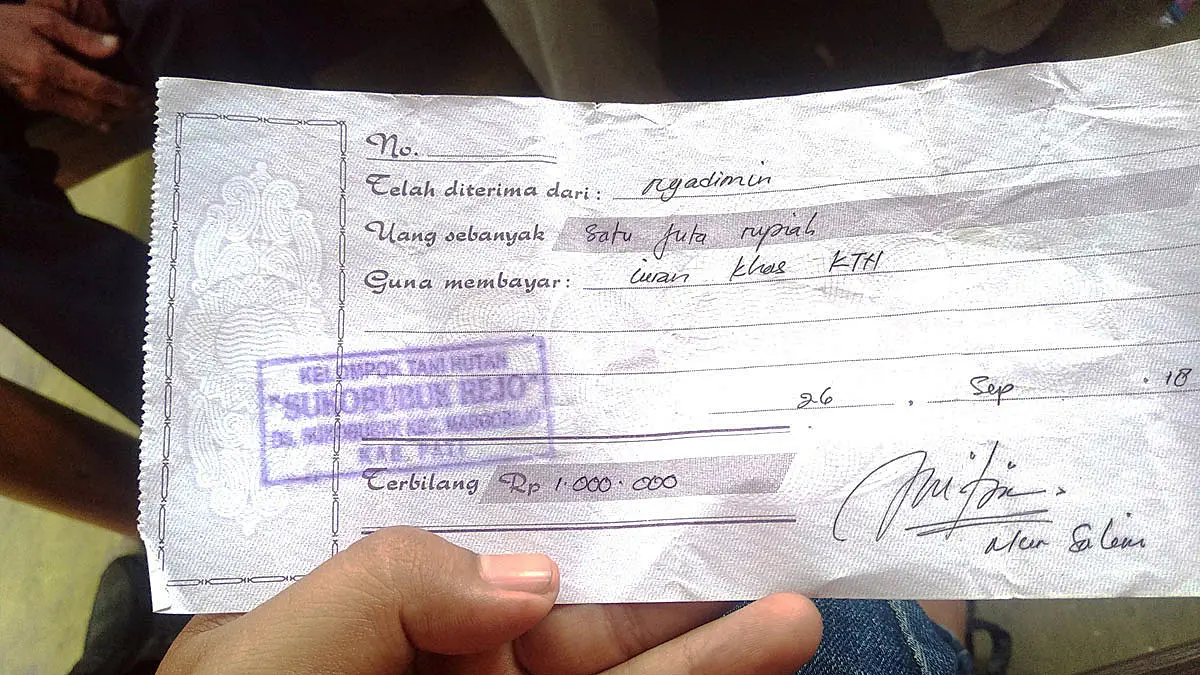 No.
Telah diterima dari : ngadimin
Uang sebanyak satu juta rupiah
Guna membayar : iuran khas KTH
KELOMPOK TANI HUTAN
"SUKOBUBUK REJO"
DS. SUKOBUBUK KEC. MARGOREJO
KAB. PATI
26 . Sep . 18
Terbilang Rp 1.000.000
Salim